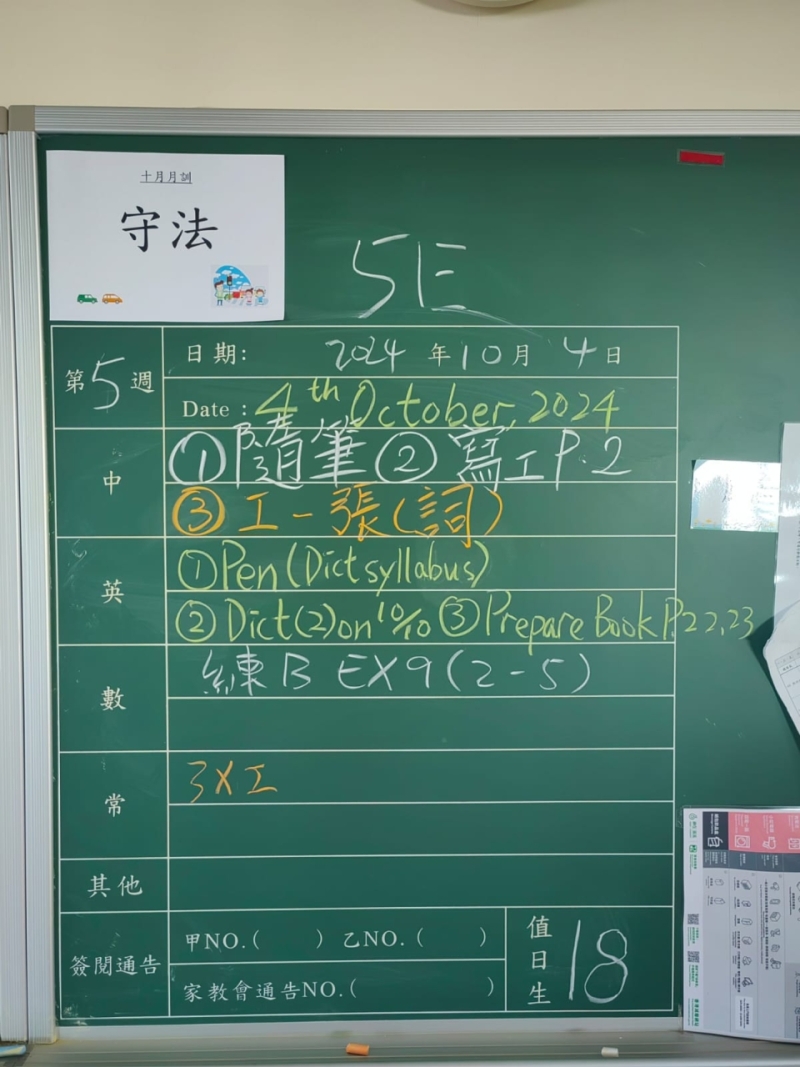 十月月訓
守法
5E
第5週
日期: 2024年10月4日
Date : 4th October, 2024
中
①隨筆 ② 寫工 P.2
③ 工一張(詞)
英
①Pen(Dict syllabus)
② Dict(2) on 10/10 ③ Prepare Book P.22,23
數
練B EX9(2-5)
常
3X工
其他
簽閱通告
甲NO.( ) 乙NO.( )
家教會通告NO.( )
值日生 18